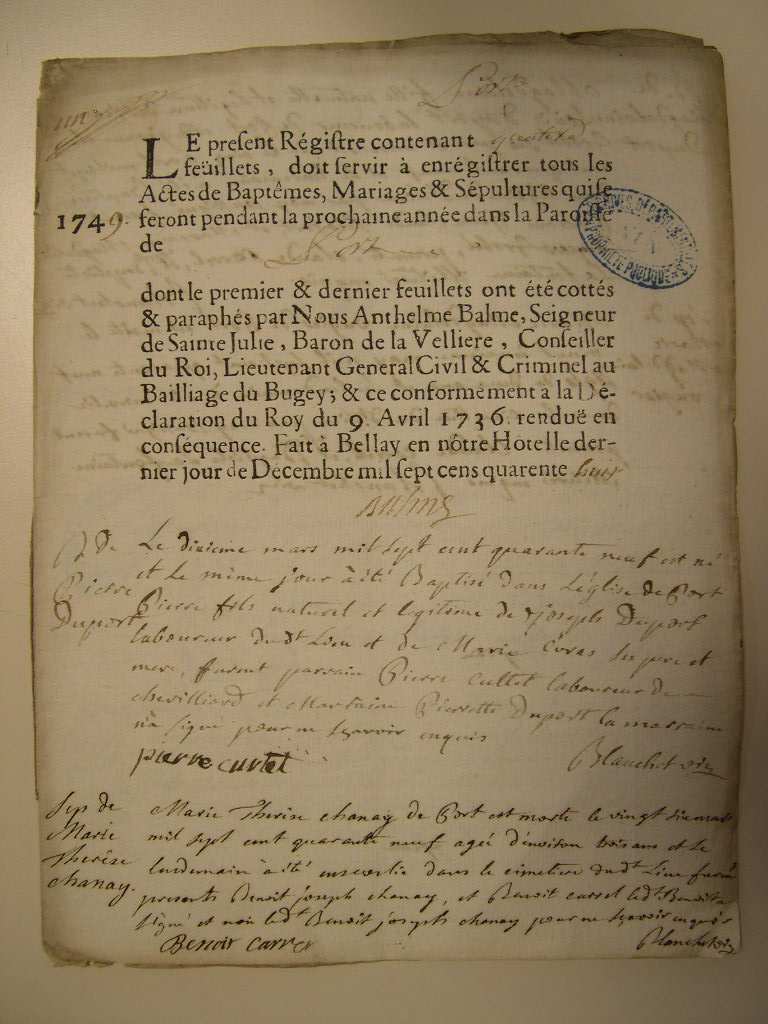 Port
LE preſent Régiſtre contenant quatre
feüillets, doit ſervir à enrégiſtrer tous les
Actes de Baptêmes, Mariages & Sépultures qui ſe
1749. feront pendant la prochaine année dans la Paroiſſe
de Port
dont le premier & dernier feuillets ont été cottés
& paraphés par Nous Anthelme Balme, Seigneur
de Sainte Julie, Baron de la Velliere, Conſeiller
du Roi, Lieutenant General Civil & Criminel au
Bailliage du Bugey; & ce conformément à la Dé-
claration du Roy du 9. Avril 1736. renduë en
conſéquence. Fait à Bellay en nôtre Hôtel le der-
nier jour de Decembre mil ſept cens quarente huit
Balme
B de
Pierre
Duport
Le dixieme mars mil sept cent quarante neuf est né
et le même jour à été Baptisé dans L'église de Port
Pierre fils naturel et legitime de joseph Duport
laboureur du dt Lieu et de Marie Cvras ses pere et
mere, furent parrain Pierre Cuttet laboureur de
chevilliard et Marraine Pierrette Duport la marraine
n'a signé pour ne sçavoir enquis
pierre curtet Blanchet
Sep de
Marie
Therèse
chanay.
Marie Therèse chanay de Port est morte le vingt six mars
mil sept cent quarante neuf agée d'environ trois ans et le
lendemain à été ensevelie dans le cimetiere du dt Lieu furent
presents Benoit joseph chanay, et Benoit carret ledt Benoit a
signé et non ledt Benoit joseph chanay pour ne sçavoir enquis
Benoit Carret Blanchet